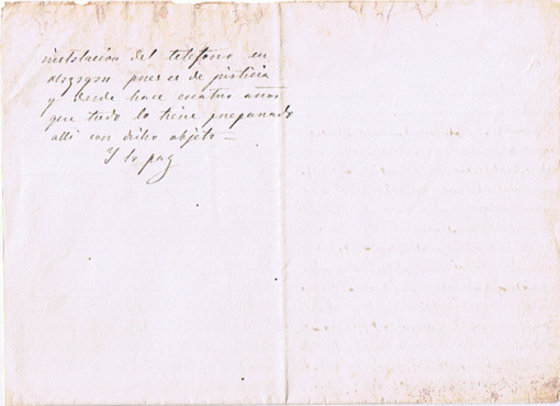 instalacion del telefono en
pues es de justicia
y desde hace cuatro años
que todo lo tiene preparado
alli con dicho objeto =
Y lo pag